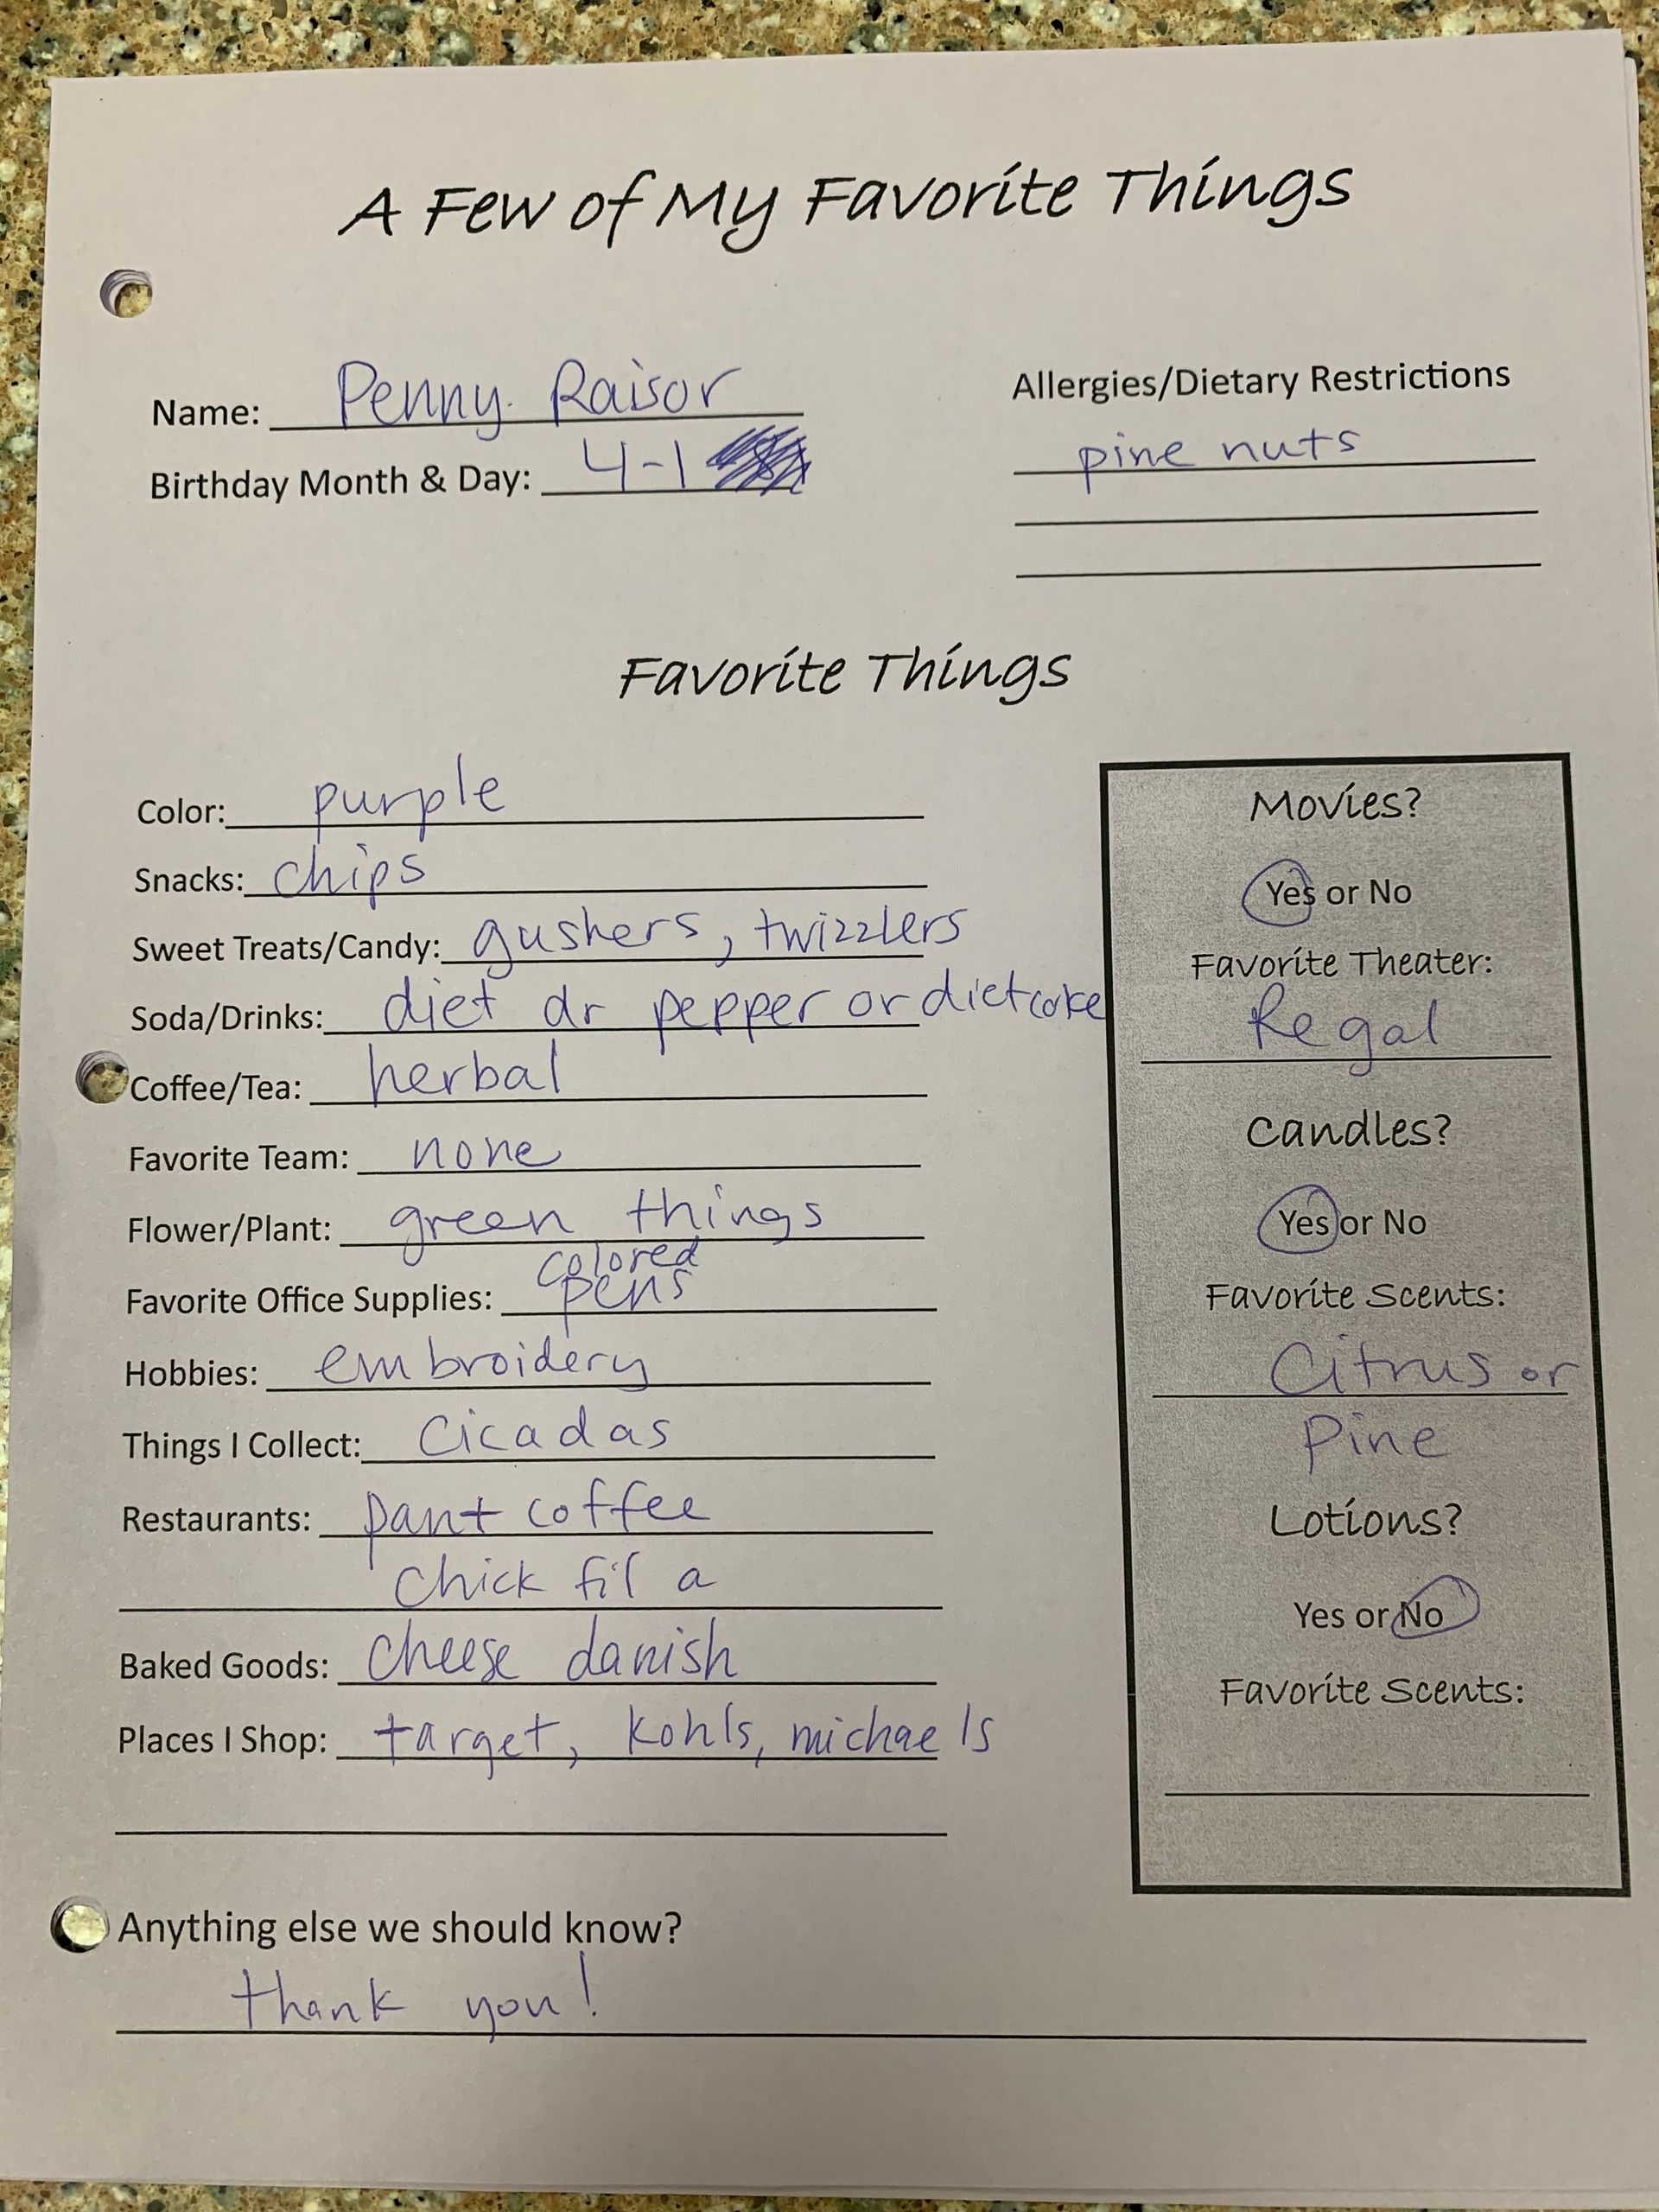 A Few of My Favorite Things
Name: Penny Raisor
Birthday Month & Day: 4-1
Allergies/Dietary Restrictions
pine nuts
Favorite Things
Color: purple
Snacks: chips
Sweet Treats/Candy: gushers, twizzlers
Soda/Drinks: diet dr pepper or diet coke
Coffee/Tea: herbal
Favorite Team: none
Flower/Plant: green things
colored
Favorite Office Supplies: pens
Hobbies: embroidery
Things I Collect: cicadas
Restaurants: pant coffee
chick fil a
Baked Goods: cheese danish
Places I Shop: target, kohls, michaels
Movies?
Yes or No
Favorite Theater:
Regal
Candles?
Yes or No
Favorite Scents:
Citrus or
Pine
Lotions?
Yes or No
Favorite Scents:
Anything else we should know?
thank you!